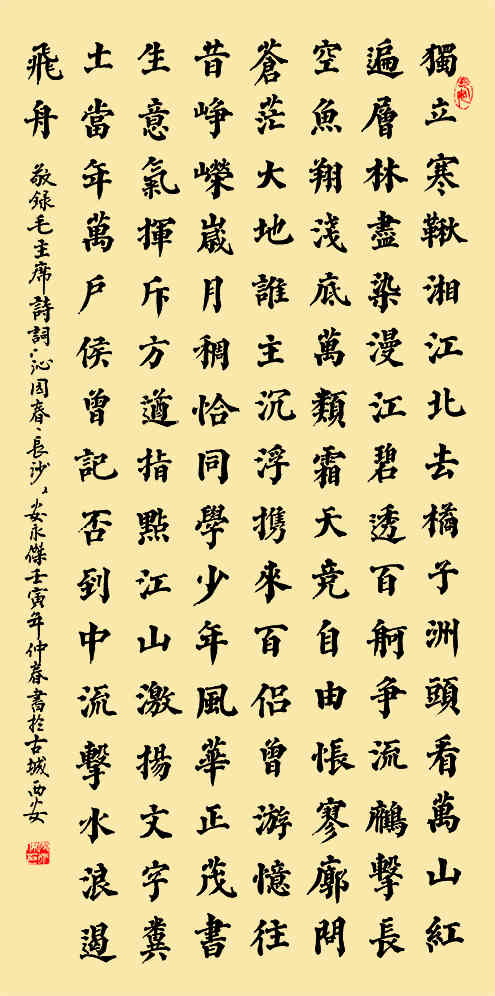 獨立寒鞦湘江北去橘子洲頭看萬山紅
遍層林盡染漫江碧透百舸爭流鷹擊長
空魚翔淺底萬類霜天竞自由悵寥廓問
蒼茫大地誰主沉浮携來百侶曾游憶往
昔崢嶸歲月稠恰同學少年風華正茂書
生意氣揮斥方遒指點江山激揚文字糞
土當年萬戶侯曾記否到中流擊水浪遏
飛舟 敬録毛主席詩詞:沁园春、長沙 安永傑壬寅年仲春書於古城西安